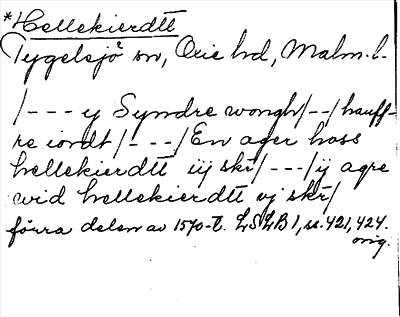 *Hellekierdtt
Tygelsjö sn, Oxie hd, Malm. l.
/--- y Syndre wongh/--/hauff-
re iordt/---/En ager hoss
hellekierdtt iij skr/---/ij agre
wid hellekierdtt vj skr/
förra delen av 1570-t. LSLB 1, ss. 421, 424.
orig.